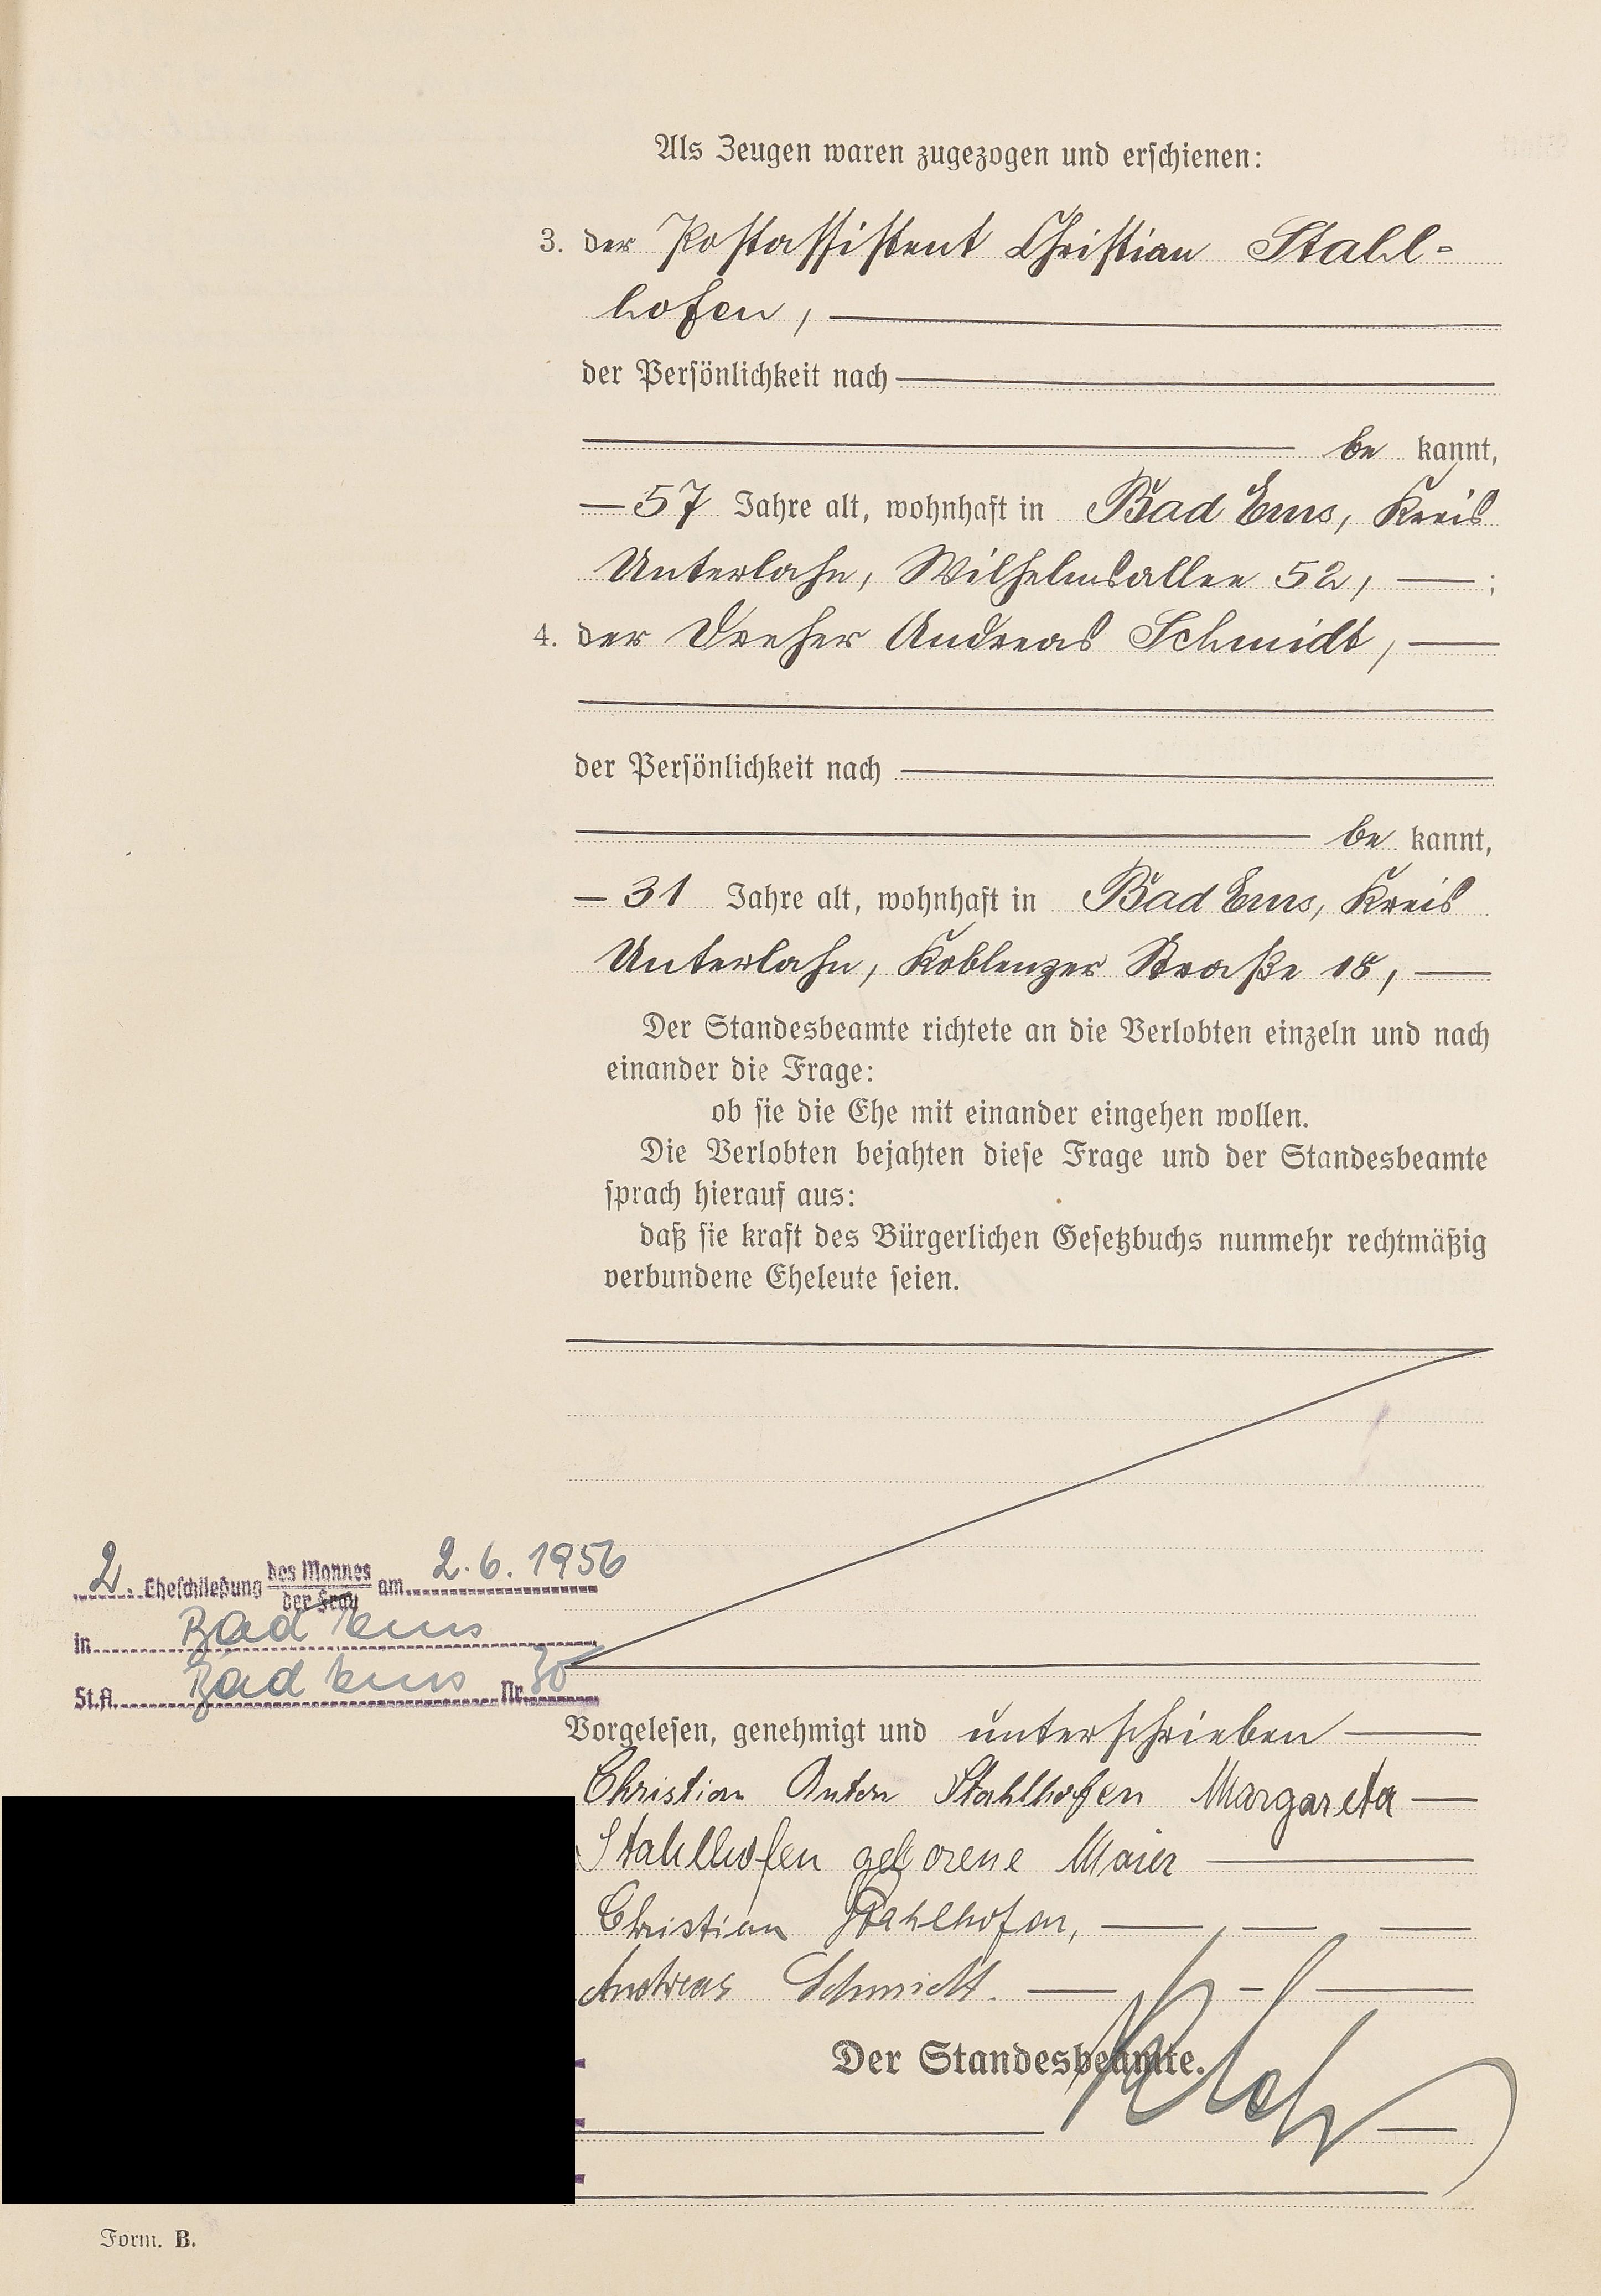 Als Zeugen waren zugezogen und erschienen:
3. der Postassistent Christian Stahl-
hofen,
der Persönlichkeit nach
be kannt,
57 Jahre alt, wohnhaft in Bad Ems, Kreis
Unterlahn, Wilhelmsallee 52, ;
4. der Dreher Andreas Schmidt,
der Persönlichkeit nach
be kannt,
31 Jahre alt, wohnhaft in Bad Ems, Kreis
Unterlahn, Koblenzer Straße 18,
Der Standesbeamte richtete an die Verlobten einzeln und nach
einander die Frage:
ob sie die Ehe mit einander eingehen wollen.
Die Verlobten bejahten diese Frage und der Standesbeamte
sprach hierauf aus:
daß sie kraft des Bürgerlichen Gesetzbuchs nunmehr rechtmäßig
verbundene Eheleute seien.
2. Eheschließung des Mannes am 2.6.1956
der Frau
in Bad Ems
St.A. Bad Ems Nr. 30
Vorgelesen, genehmigt und unterschrieben
Christian Anton Stahlhofen Margareta
Stahlhofen geborene Maier
Christian Stahlhofen,
Andreas Schmidt.
Der Standesbeamte.
Form. B.